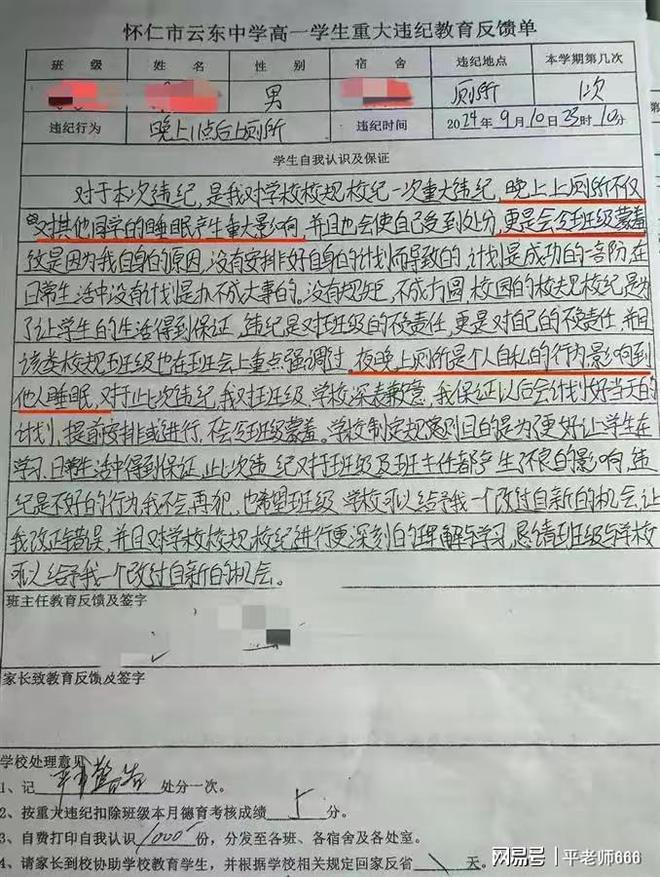 怀仁市云东中学高一学生重大违纪教育反馈单
班 级 姓 名 性 别 宿 舍 违纪地点 本学期第几次
男 厕所 1次
违纪行为 晚上11点后上厕所 违纪时间 2024年9月10日23时10分
学生自我认识及保证
对于本次违纪，是我对学校校规校纪一次重大违纪，晚上上厕所不仅
对其他同学的睡眠产生重大影响，并且也会使自己受到处分，更是会令班级蒙羞
这是因为我自身的原因，没有安排好自身的计划而导致的，计划是成功的一部份，在
日常生活中没有计划是办不成大事的。没有规矩，不成方圆，校园的校规校纪是为
了让学生的生活得到保证，违纪是对班级的不负责任，更是对自己的不负责任，并且
该类校规班级也在班会上重点强调过，夜晚上厕所是个人自私的行为影响到
他人睡眠，对于此次违纪，我对班级、学校深表歉意，我保证以后会计划好当天的
计划，提前安排或进行，不令班级蒙羞。学校制定规章目的是为了更好让学生在
学习、日常生活中得到保证，此次违纪对班级及班主任都产生了不良的影响，违
纪是不好的行为，我不会再犯，也希望班级、学校可以给予我一个改过自新的机会，让
我改正错误，并且对学校校规校纪进行更深刻的理解与学习，恳请班级与学校
可以给予我一个改过自新的机会。
班主任教育反馈及签字
家长致教育反馈及签字
学校处理意见
1、记 严重警告 处分一次。
2、按重大违纪扣除班级本月德育考核成绩 5 分。
3、自费打印自我认识 1000 份，分发至各班、各宿舍及各处室。
4、请家长到校协助学校教育学生，并根据学校相关规定回家反省 天。
网易号 | 平老师666